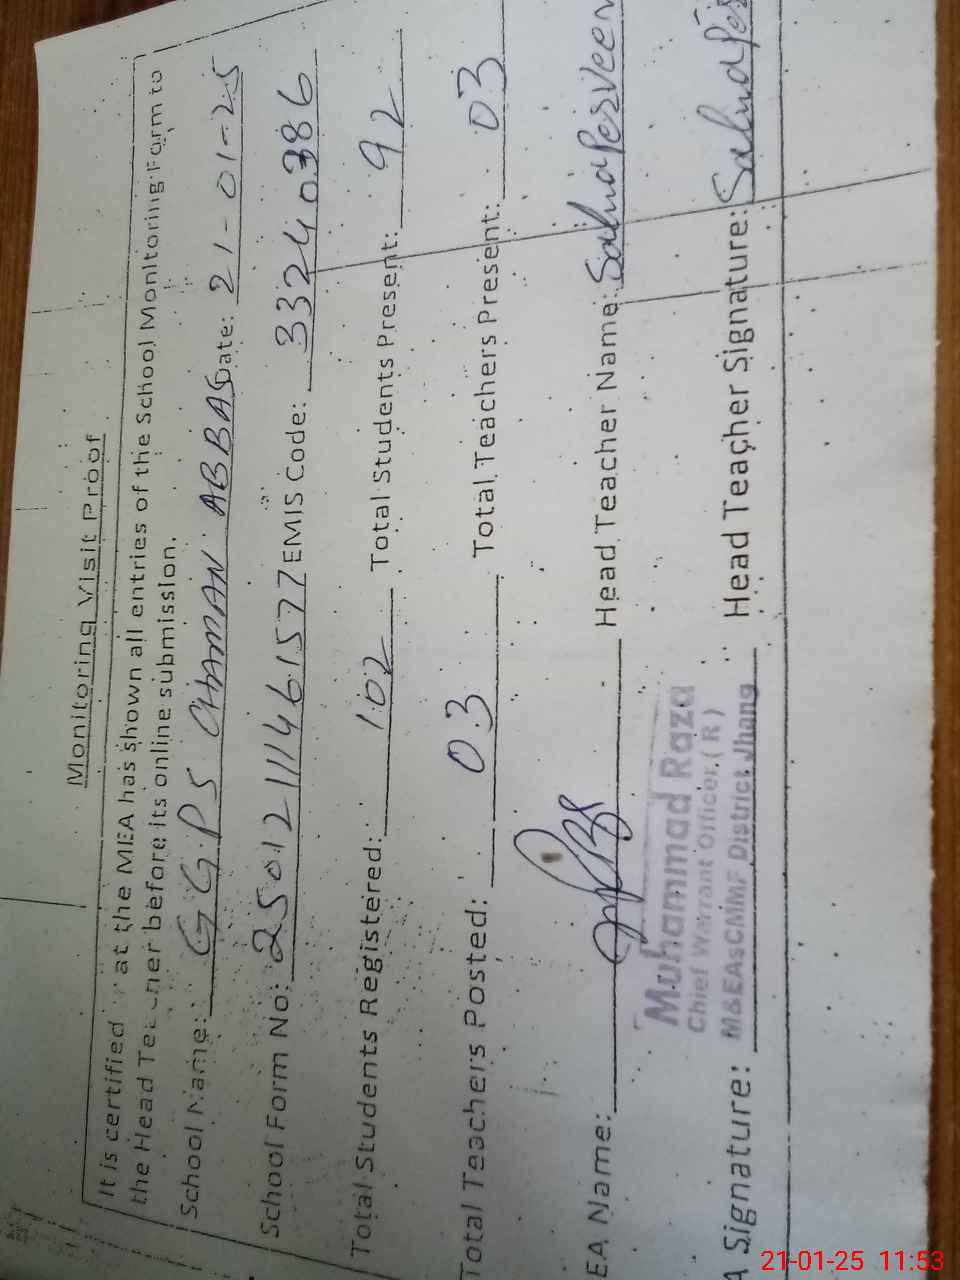 Monitoring Visit Proof
It is certified at the MEA has shown all entries of the School Monitoring Form to
the Head Teacher before its online submission.
School Name: G.G.P.S CHAMAN ABBAS Date: 21-01-25
School Form No: 25012111461577 EMIS Code: 33240386
Total Students Registered: 102 Total Students Present: 92
Total Teachers Posted: 03 Total Teachers Present: 03
EA Name: Head Teacher Name: Salma Perveen
Muhammad Raza
Chief Warrant Officer (R)
M&EAsCMMF District Jhang
A Signature: Head Teacher Signature: Salma Per
21-01-25 11:53